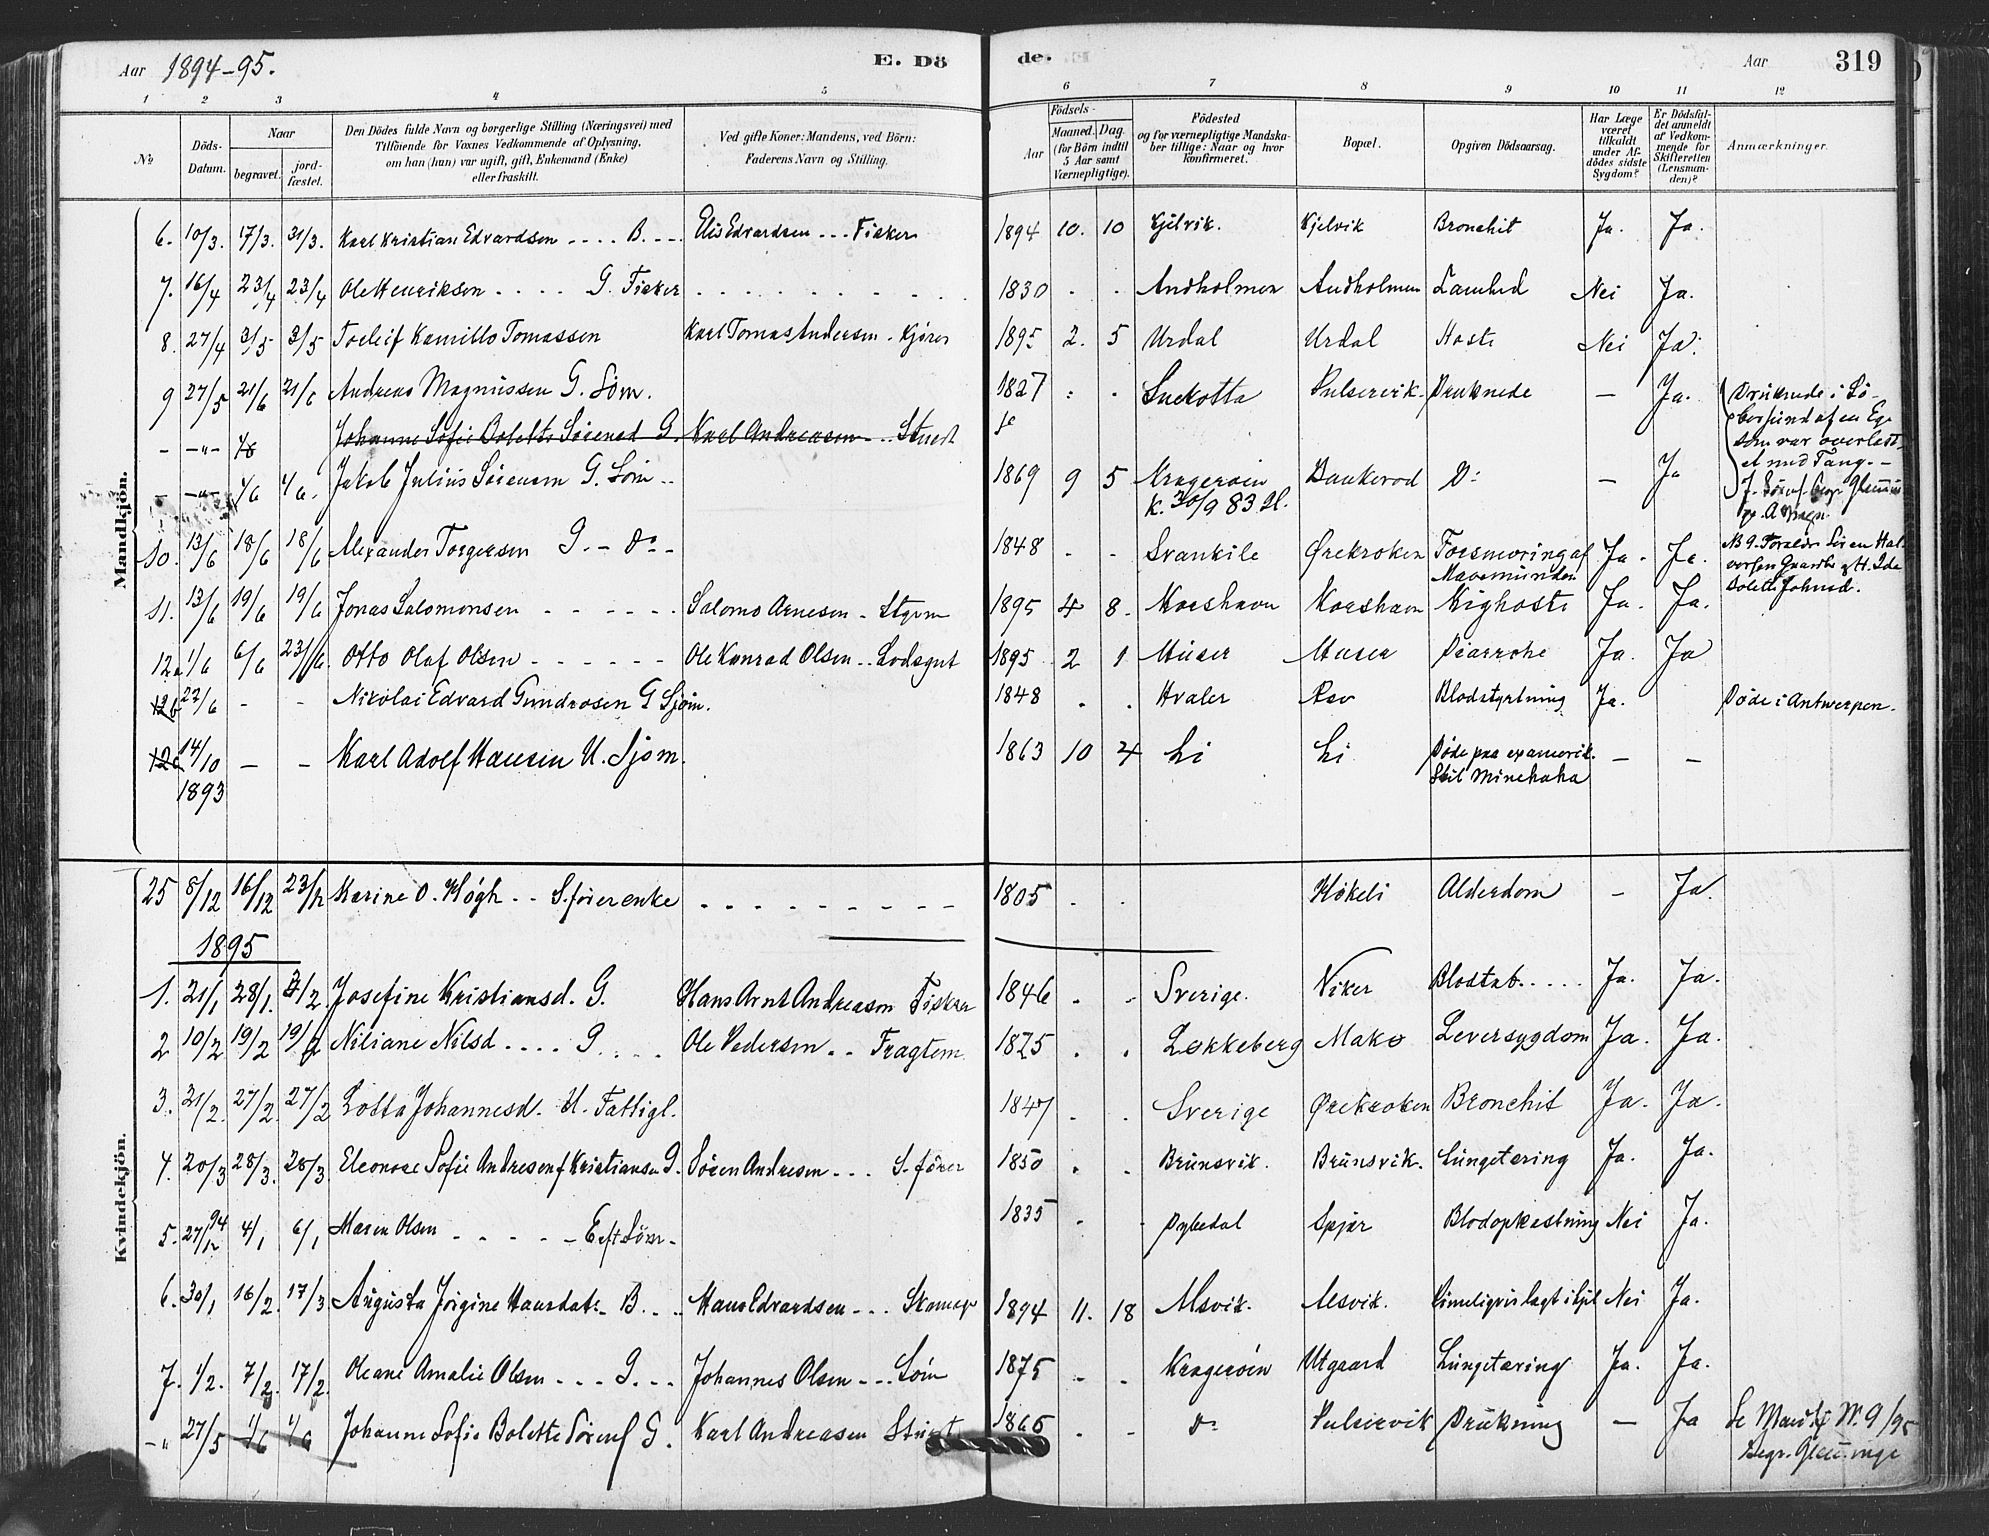 Aar 1894-95.
E. Dö
de.
Aar
319
1 2 3 4 5 6 7 8 9 10 11 12
№
Döds-Datum.
Naar
begravet.
jordfæstet.
Den Dödes fulde Navn og borgerlige Stilling (Næringsvei) med
Tilföiende for Voxnes Vedkommende af Oplysning,
om han (hun) var ugift, gift, Enkemand (Enke)
eller fraskilt.
Ved gifte Koner: Mandens, ved Börn:
Faderens Navn og Stilling.
Födsels-
Aar
Maaned. Dag.
(for Börn indtil
5 Aar samt
Værnepligtige).
Födested
og for værnepligtige Mandska-
ber tillige: Naar og hvor
konfirmeret.
Bopæl.
Opgiven Dödsaarsag.
Har Læge
været
tilkaldt
under Af-
dödes sidste
Sygdom?
Er Dödsfal-
det anmeldt
af Vedkom-
mende for
Skifteretten
(Lensman-
den)?
Anmærkninger.
Mandkjön.
6. 10/3. 17/3. 31/3. Karl Kristian Edvardsen .... B. .. Elis Edvardsen ... Fisker 1894 10. 10 Kjelvik. Kjelvik Bronchit Ja. Ja.
7. 16/4 23/4 23/4 Ole Henriksen .... G. Fisker 1830 . . Andholmen Andholmen Lamhed Nei Ja.
8. 27/4 3/5 3/5 Torleif Kamillo Tomassen Karl Tomas Andersen . Kjører 1895 2. 5 Urdal Urdal Hoste Nei Ja.
9 27/5 21/6 21/6 Andreas Magnussen G. Söm. 1827 . . Pulservik. Druknede — Ja. Druknede i Sö-
som var overlast-
et med Tang. -
- -"- Johanne Sofie Bolette Sörensd G. Karl Andreasen .. Stuert
- -"- 1/6 1/6. Jakob Julius Sörensen G. Söm .. 1869 9 5 Kragerøen Bankerød D: — Ja
K. 30/9 83
10. 13/6 18/6 18/6 Alexander Torgersen G. - Do - 1848 - - Svankile Ørekroken Forsnevring af Ja. Ja.
Mavemunden
11. 13/6 19/6 19/6 Jonas Salomonsen - - - - - Salomo Arnesen - Styrm 1895 4 8. Korshavn Korshavn Kighoste Ja. Ja.
12a 1/6 6/6 23/6. Otto Olaf Olsen - - - - - Ole Konrad Olsen .. Lodsgut 1895 2 1 Huser Huser Diarrohe Ja. Ja
12b 22/6 - - Nikolai Edvard Gundrosen G Sjöm. 1848 . . Hvaler Rev Blodstyrtning Ja. Döde i Antwerpen.
12c 14/10 — - Karl Adolf Hansen U. Sjöm. 1863 10 4 Li Li Döde paa — —
1893 Skib Minehaha
Kvindekjön.
25 8/12 16/12 23/12 Karine O. Høgh .. S.förerenke 1805 . . Høkeli Alderdom - Ja.
1895
1. 21/1 28/1. 3/2. Josefine Kristiansd. G. Hans Arnt Andreason Fisker 1846 . . Sverige. Viker Blodtab..... Ja. Ja.
2 10/2 19/2 19/2 Niliane Nilsd .... G .... Ole Pedersen .. Fragtem. 1825 . . Løkkeberg Makø Leversygdom Ja. Ja.
3. 21/2. 27/2. 27/2 Lotta Johannesd. U. Fattigl. 1847 . . Sverige Ørekroken Bronchit Ja. Ja.
4. 20/3 28/3. 28/3. Eleonore Sofie Andresen f Kristiansen G. Sören Andresen ... S.förer 1850 . . Brunsvik. Brunsvik. Lungetæring Ja. Ja.
5. 27/12 94 4/1 6/1 Maren Olsen - - - - - 1835 . . Dybedal Spjær Blodopkastning Nei Ja.
6. 30/1 16/2. 17/3 Augusta Jörgine Hansdat- B. .. Hans Edvardsen ... 1894 11. 18 Alsvik. Alsvik. Rimeligvis lagt ihjel Nei Ja.
7. 1/2. 7/2. 17/2. Oleane Amalie Olsen ... G. .. Johannes Olsen ... Söm 1875 . . Kragerøen Utgaard Lungetæring Ja. Ja.
-" 27/5 1/6 1/6 Johanne Sofie Bolette Sörensd G. Karl Andreasen Stuert 1865 . . Do Pulservik Drukning — Ja Se Mandkj No. 9/95